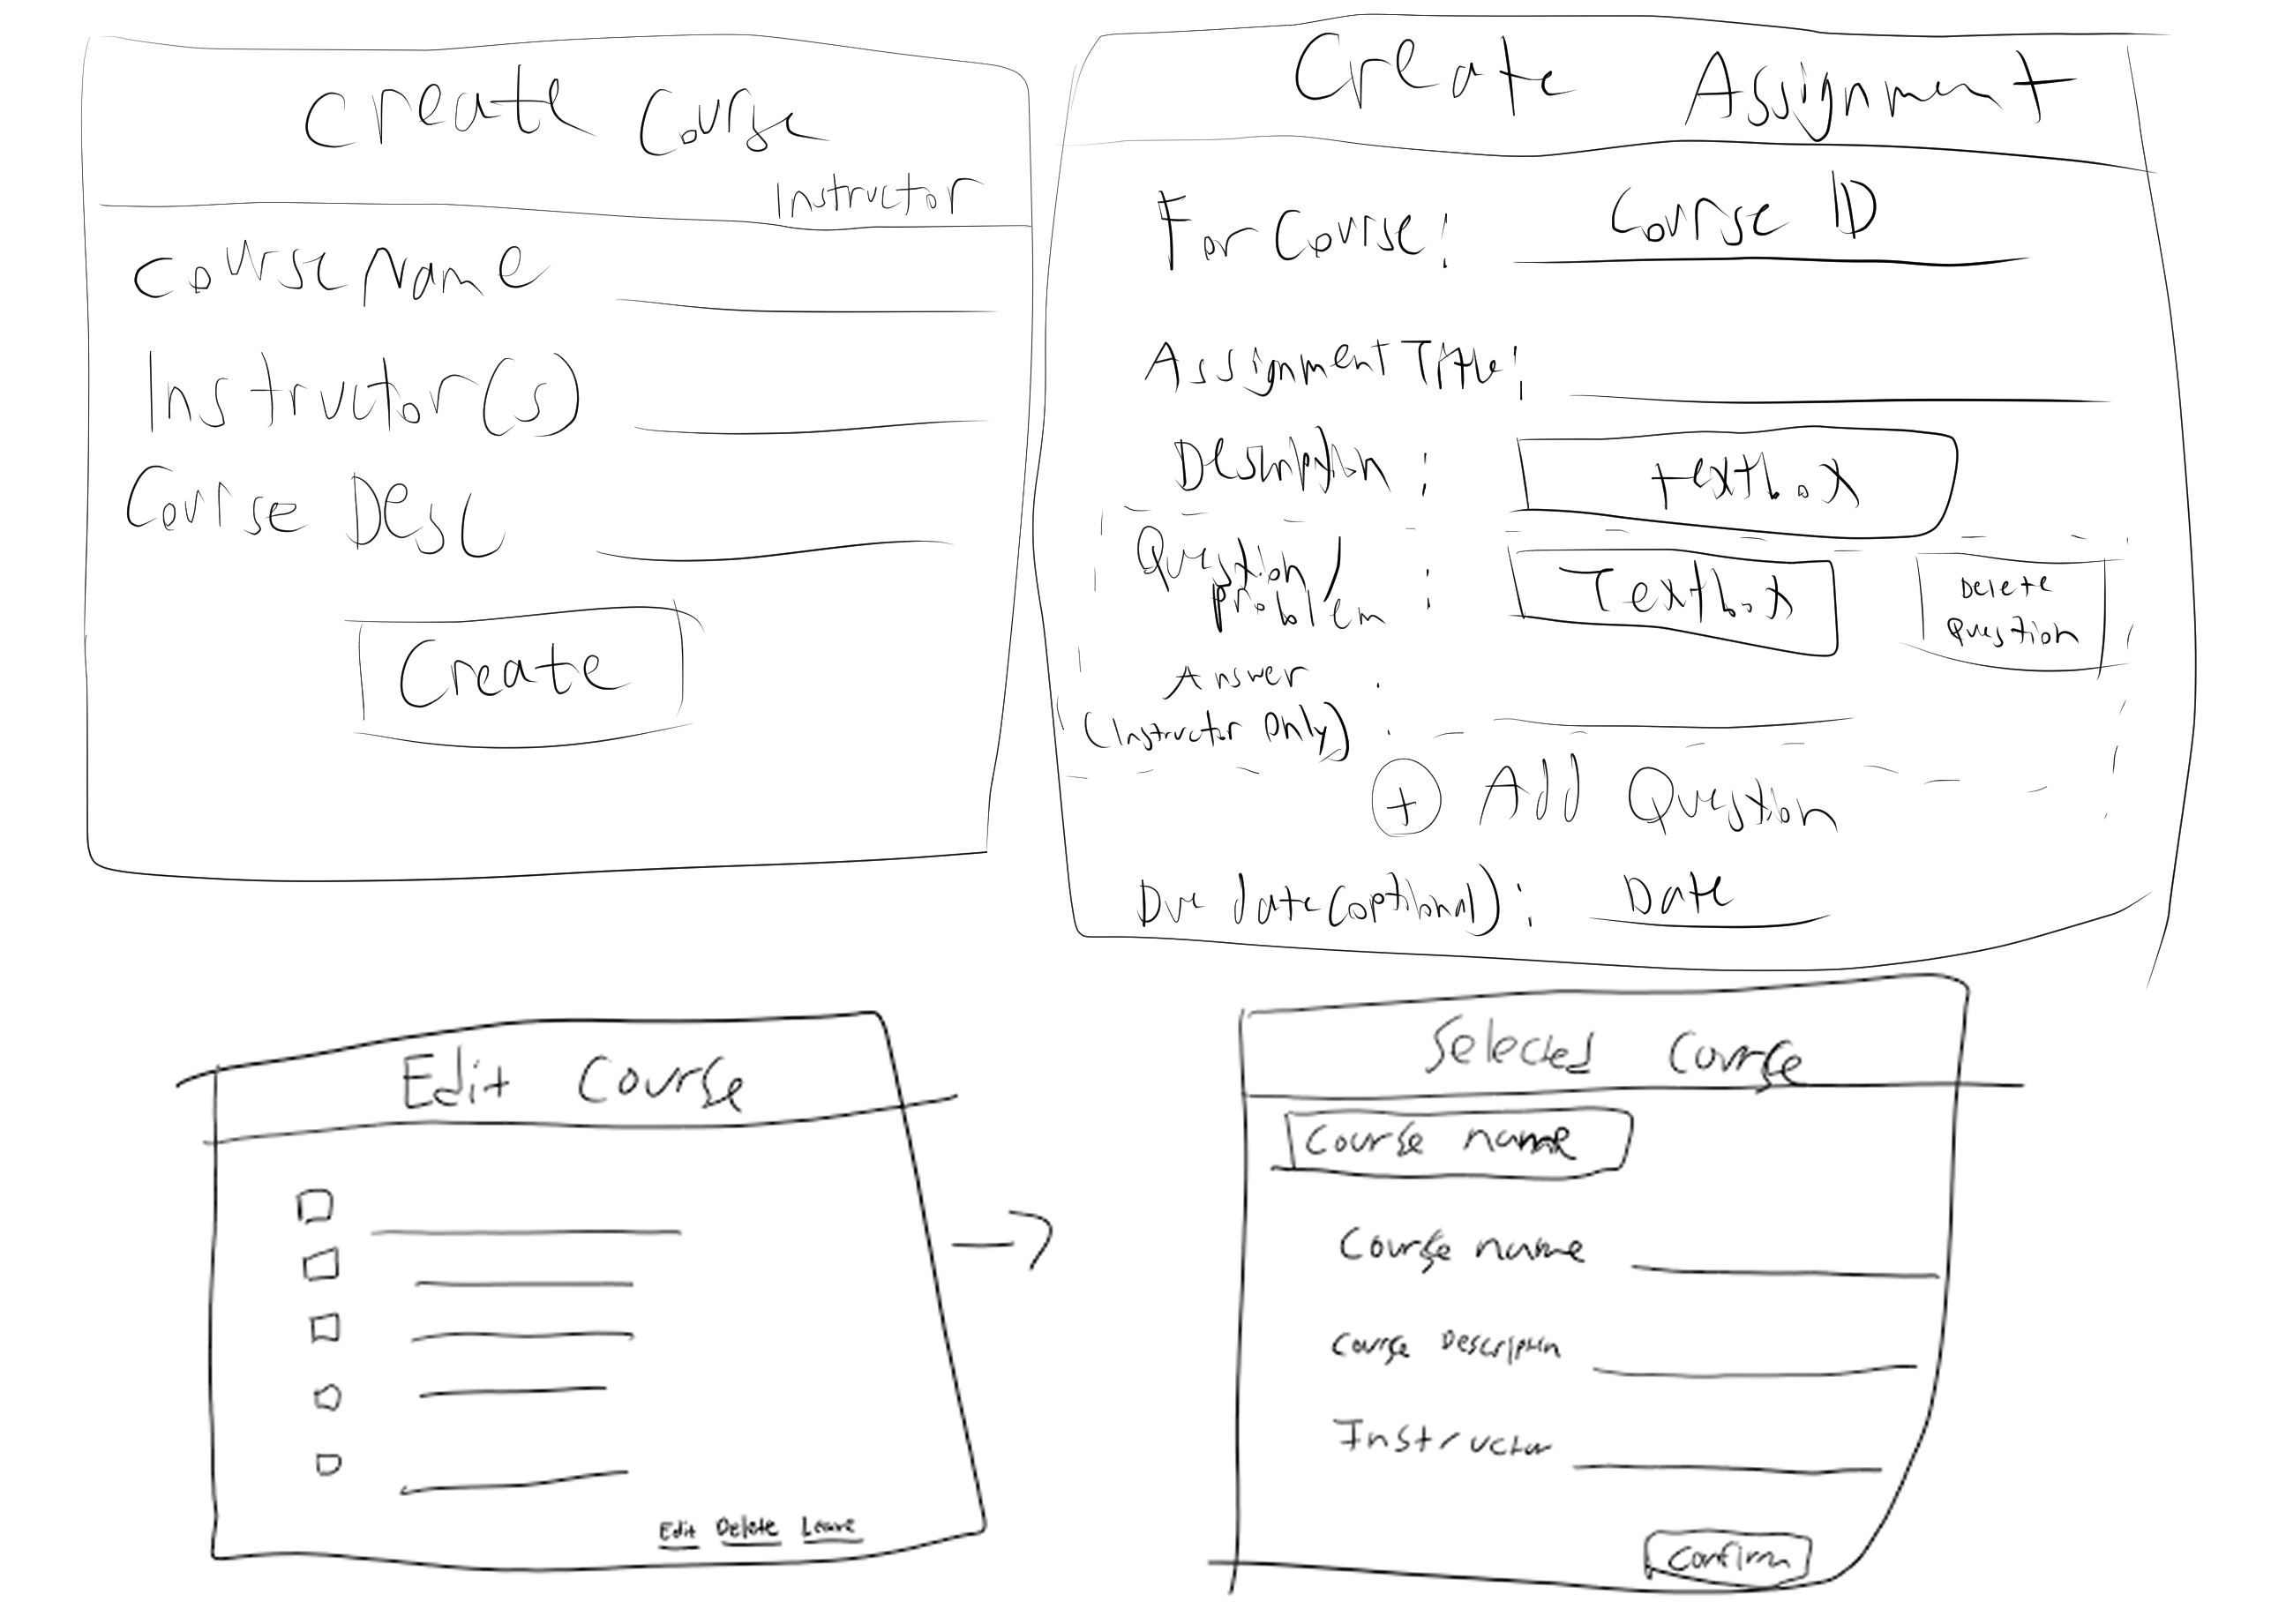 Create Course
Instructor
Course Name
Instructor(s)
Course Desc
Create
Create Assignment
For Course: Course ID
Assignment Title:
Description: textbox
Question/ problem : Textbox
Delete Question
Answer :
(Instructor Only)
+ Add Question
Due date (optional): Date
Edit Course
Edit Delete Leave
Selected Course
Course name
Course name
Course Description
Instructor
Confirm